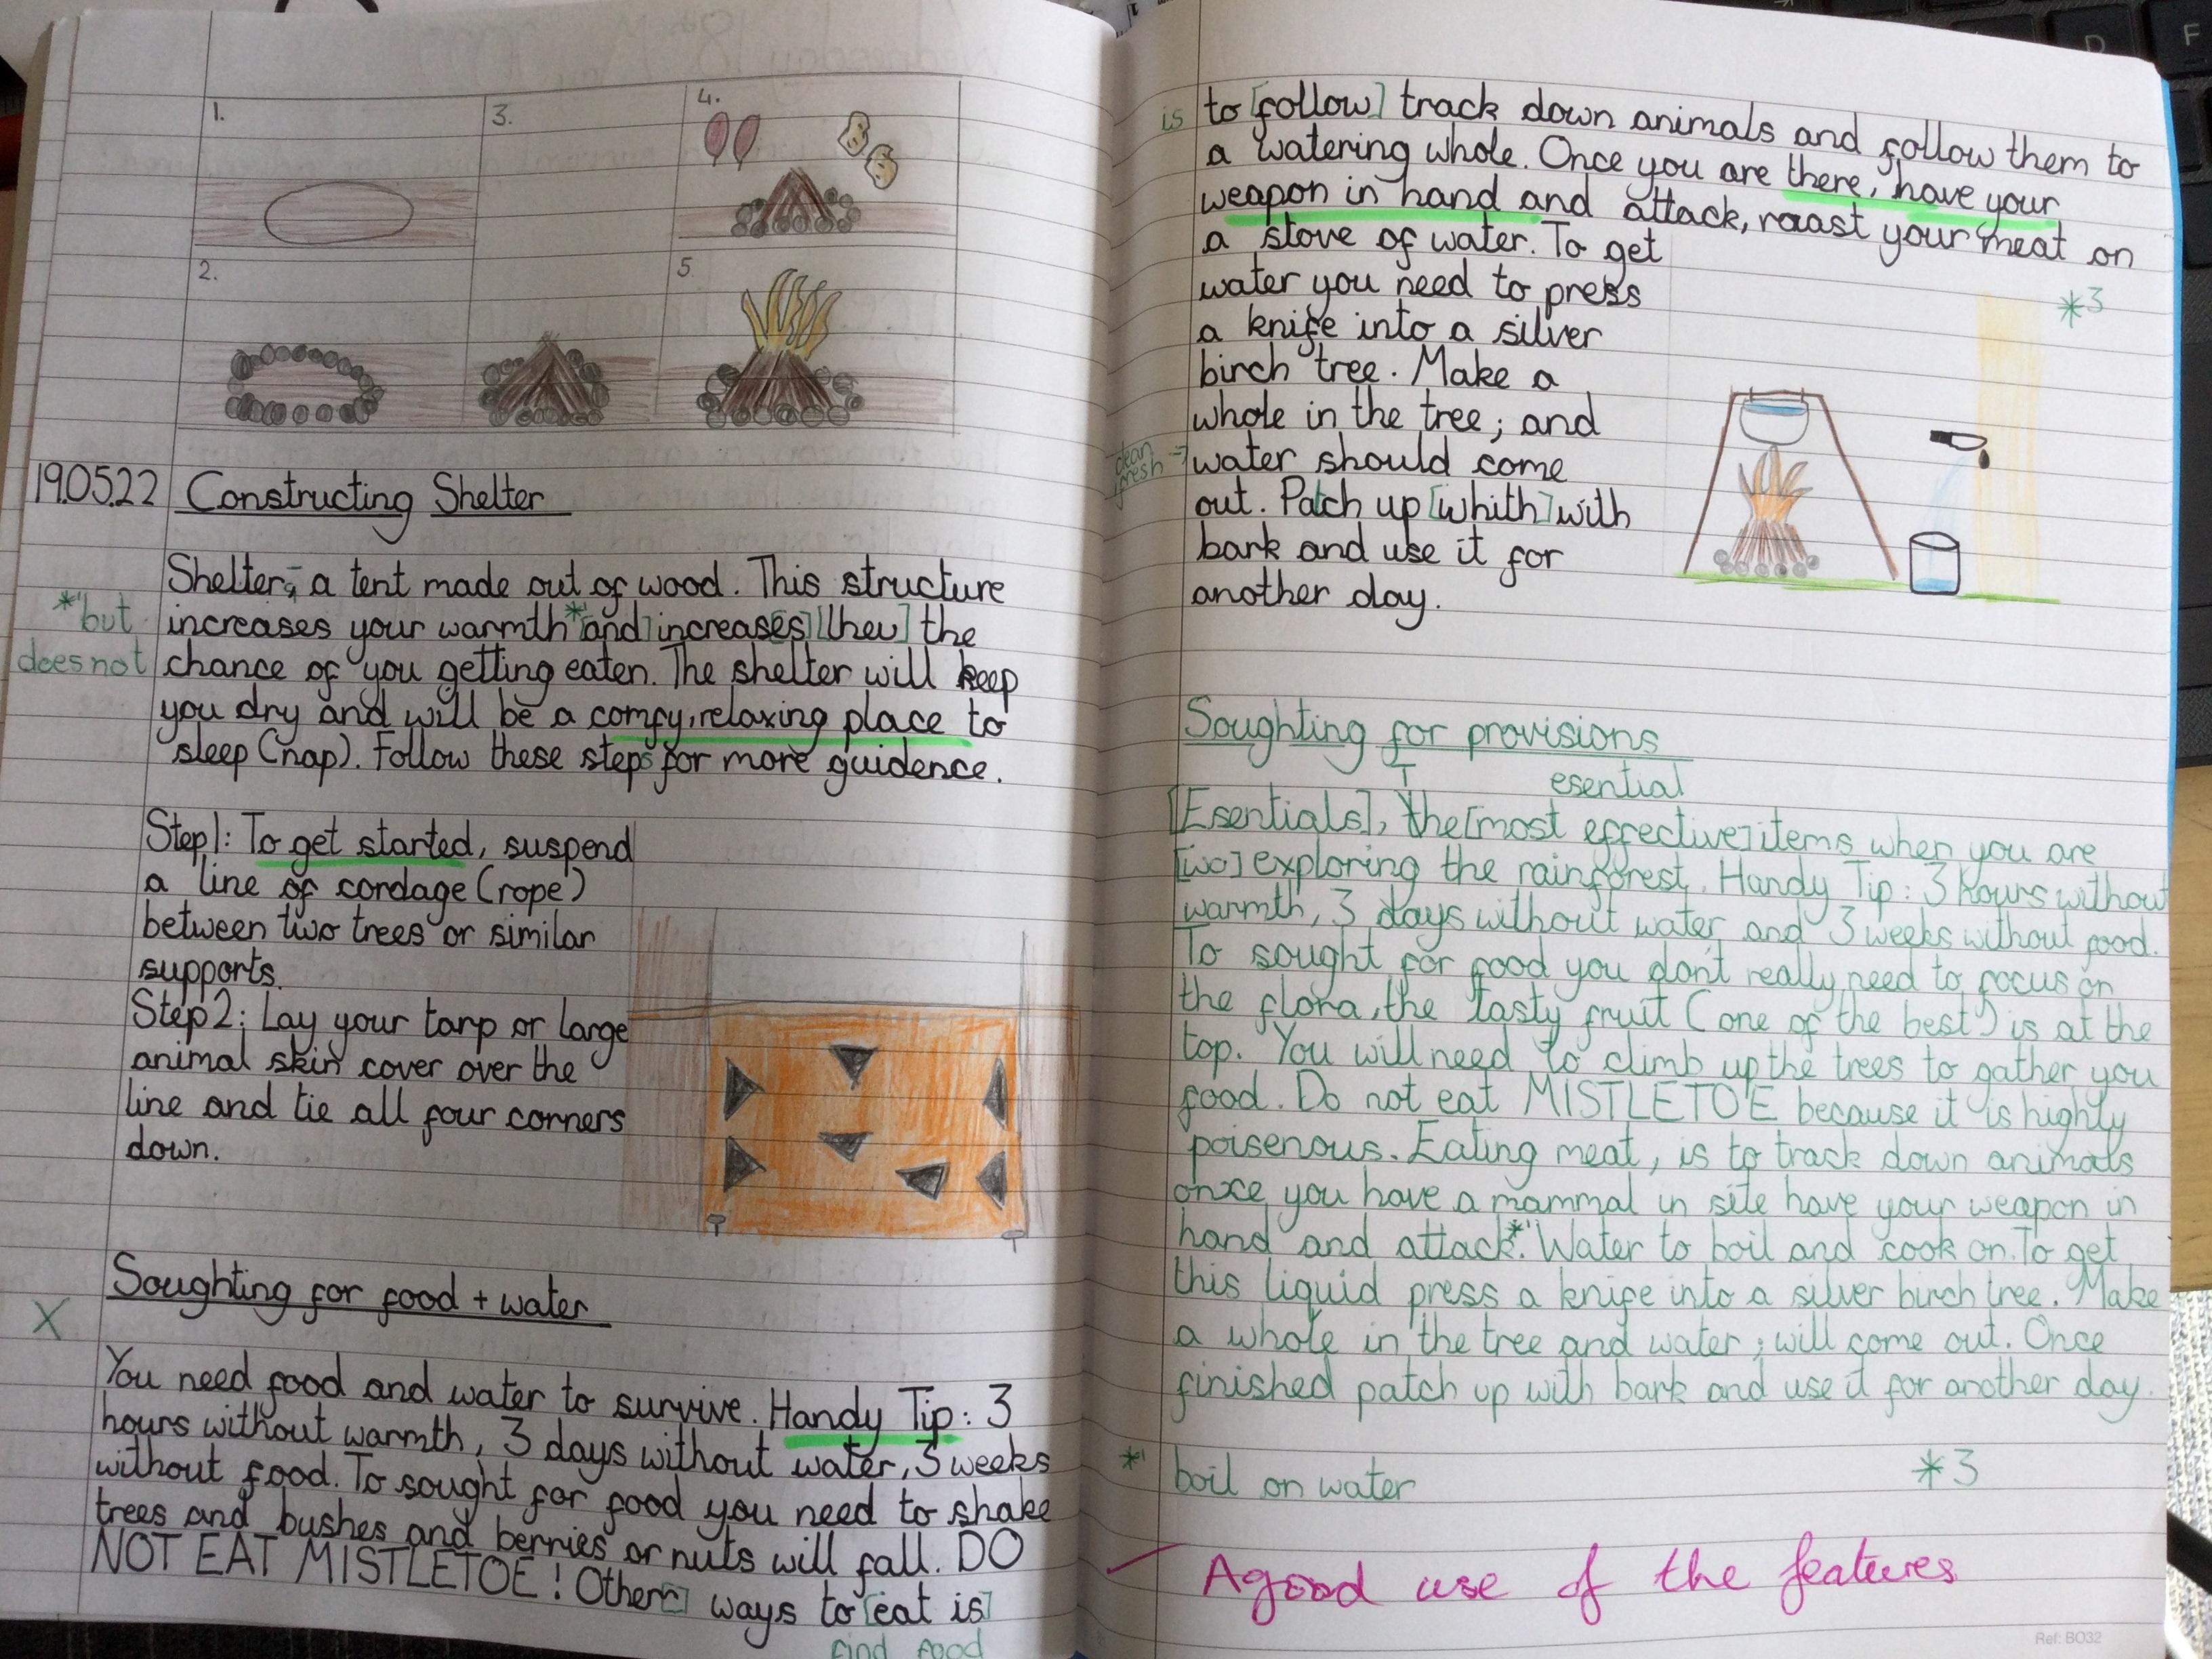 1.
3.
4.
2.
5.
19.05.22 Constructing Shelter
Shelter, a tent made out of wood. This structure
*but increases your warmth* [and] increase[s] [theu] the
does not chance of you getting eaten. The shelter will keep
you dry and will be a comfy, relaxing place to
sleep (nap). Follow these steps for more guidence.
Step 1: To get started, suspend
a line of cordage (rope)
between two trees or similar
supports.
Step 2: Lay your tarp or large
animal skin cover over the
line and tie all four corners
down.
Soughting for food + water
X
You need food and water to survive. Handy Tip: 3
hours without warmth, 3 days without water, 3 weeks
without food. To sought for food you need to shake
trees and bushes and berries or nuts will fall. DO
NOT EAT MISTLETOE! Other[] ways to [eat is]
find food
is to [follow] track down animals and follow them to
a watering whole. Once you are there, have your
weapon in hand and attack, roast your meat on
a stove of water. To get
water you need to press
a knife into a silver
birch tree. Make a
whole in the tree; and
clean fresh → water should come
out. Patch up [whith] with
bark and use it for
another day.
*3
Soughting for provisions
T esential
[Esentials], the [most effective] items when you are
[wo] exploring the rainforest. Handy Tip: 3 hours without
warmth, 3 days without water and 3 weeks without food.
To sought for food you don't really need to focus on
the flora, the tasty fruit (one of the best) is at the
top. You will need to climb up the trees to gather you
food. Do not eat MISTLETOE because it is highly
poisenous. Eating meat, is to track down animals
once you have a mammal in site have your weapon in
hand and attack*¹. Water to boil and cook on. To get
this liquid press a knife into a silver birch tree. Make
a whole in the tree and water; will come out. Once
finished patch up with bark and use it for another day.
*¹ boil on water *3
A good use of the features
Ref: BO32
D
F